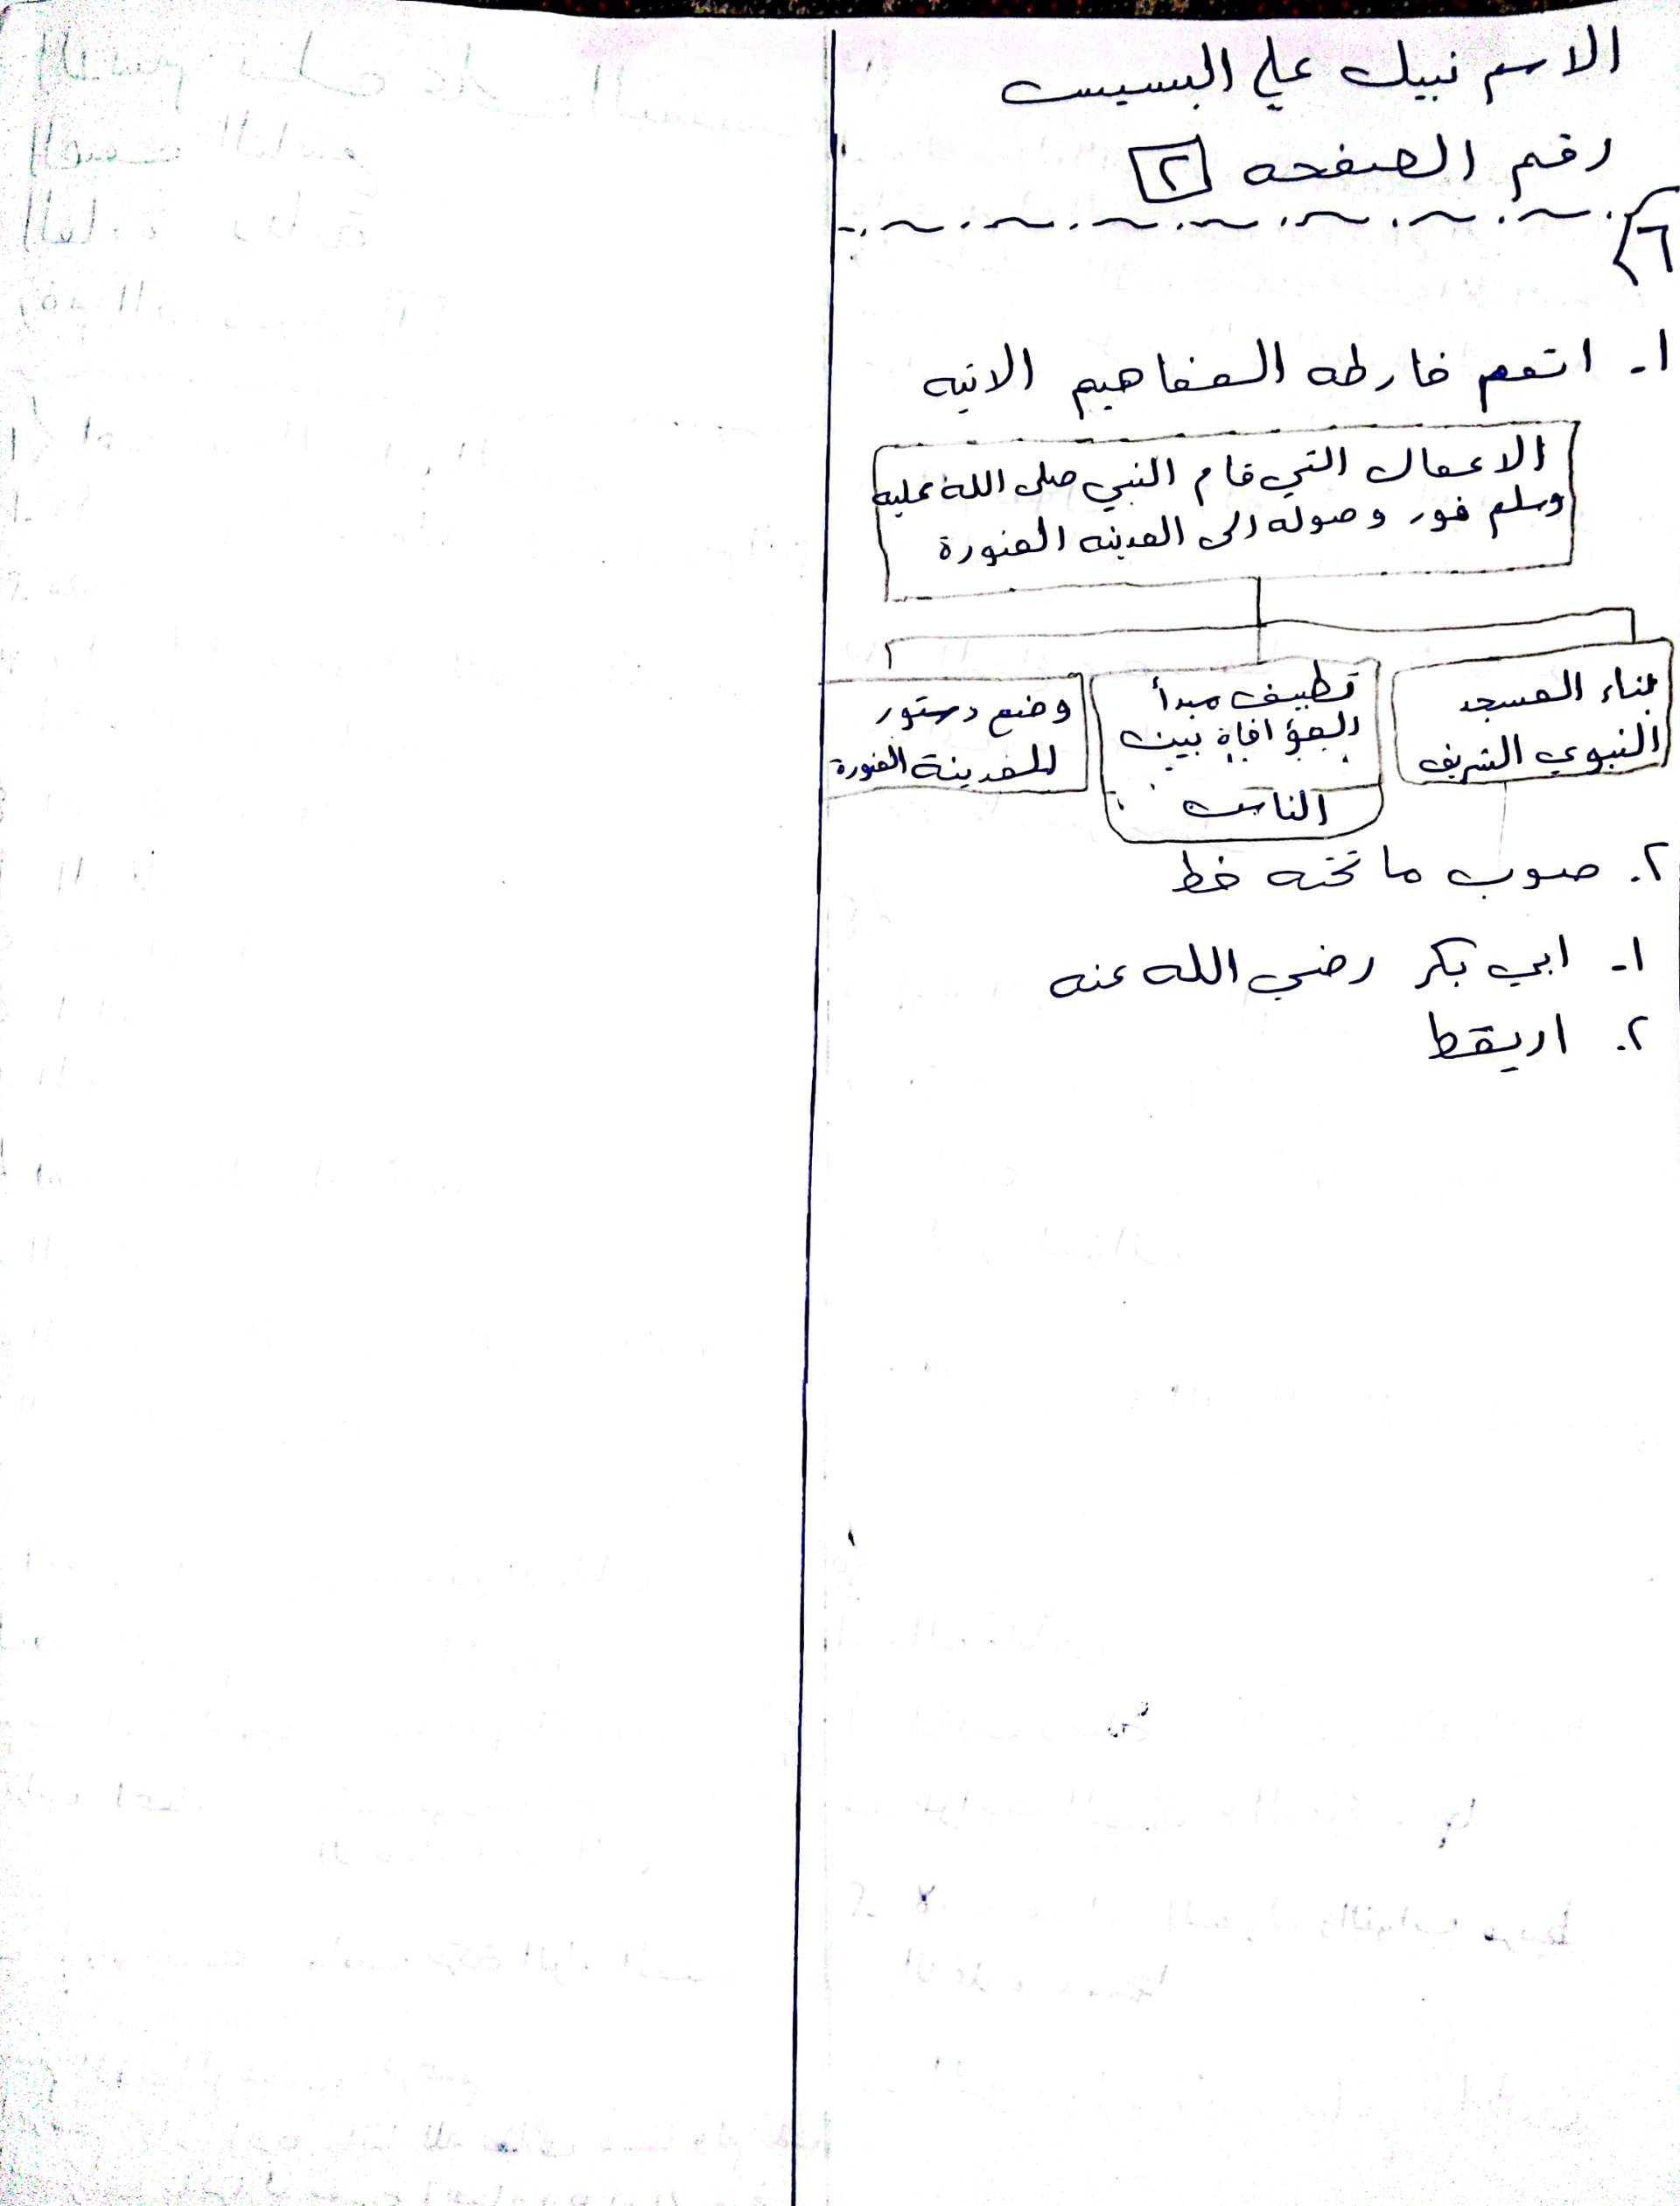 الاسم نبيل علي البسيس
رقم الصفحه ٢
٦
١- اتمم خارطه المفاهيم الاتيه
الاعمال التي قام النبي صلى الله عليه
وسلم فور وصوله الى المدينه المنورة
بناء المسجد
النبوي الشريف
تطبيق مبدأ
المؤاخاة بين
الناس
وضع دستور
للمدينة المنورة
٢. صوب ما تحته خط
١- ابي بكر رضي الله عنه
٢. اريقط